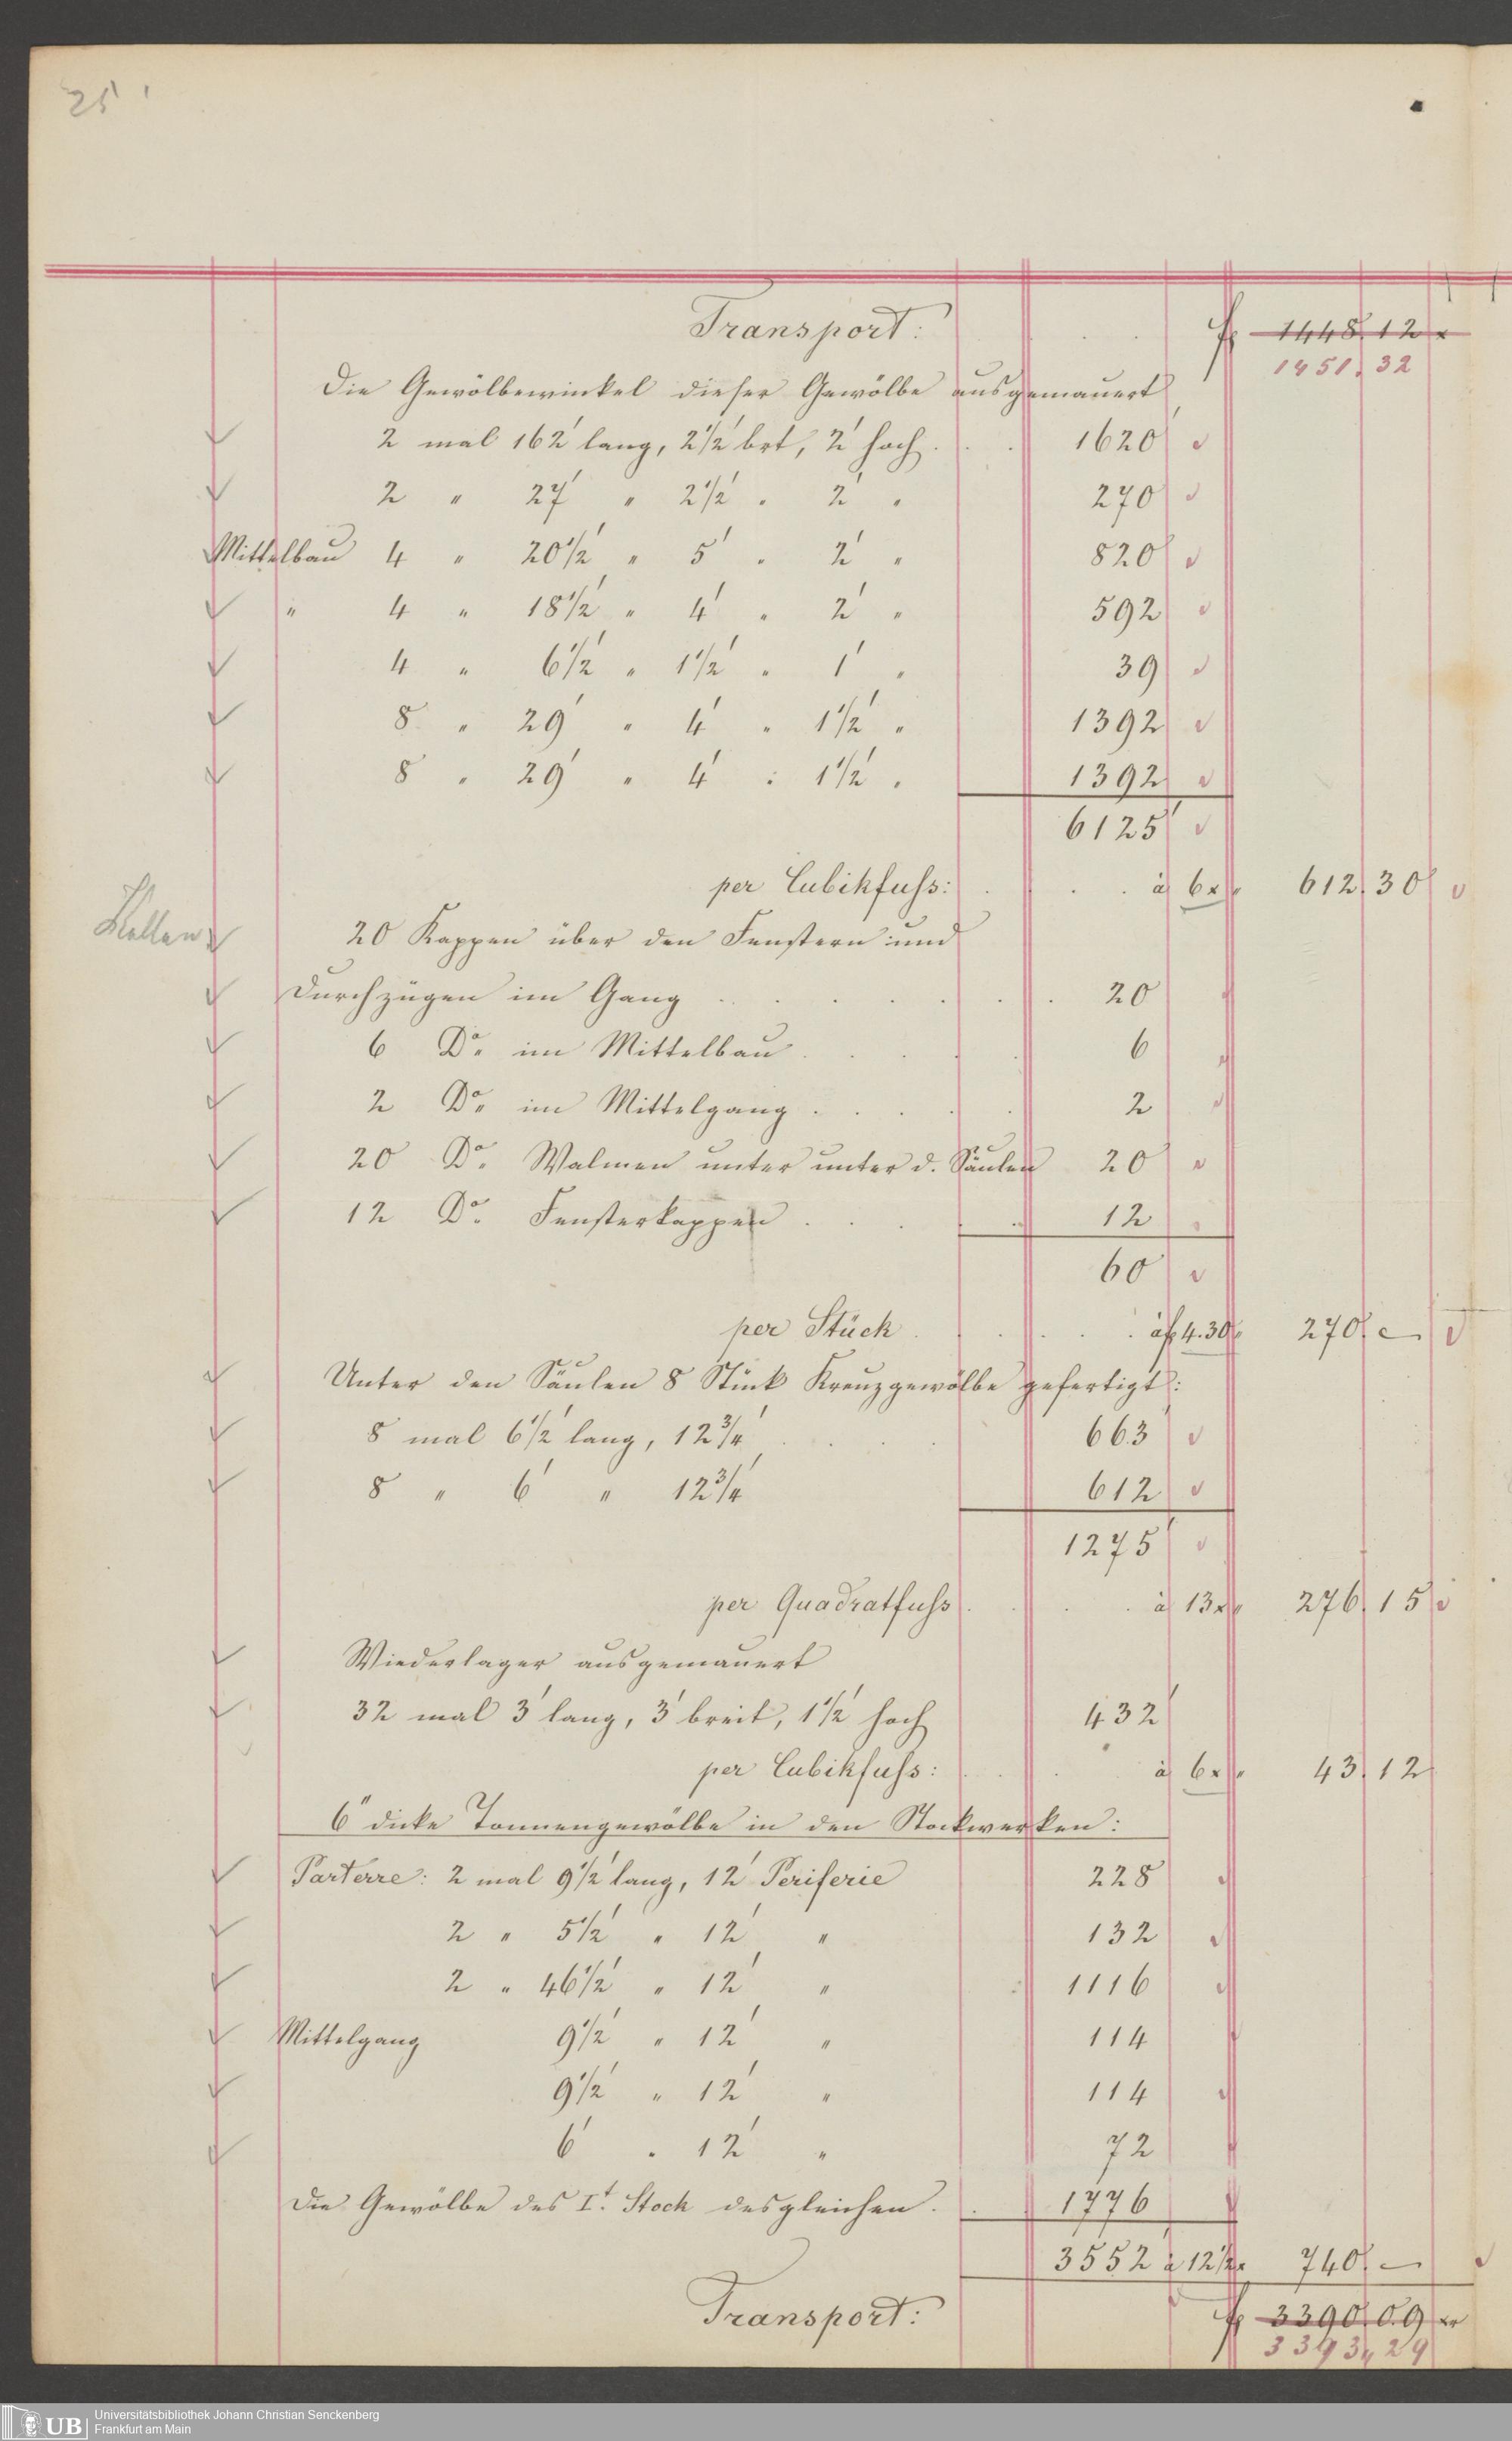 25
Transport: f 1448. 12 x
1451. 32
Die Gewölbewinkel dieser Gewölbe ausgemauert
2 mal 162' lang, 2½' brt, 2' hoch . . 1620'
2 " 27' " 2½' " 2' " 270'
Mittelbau 4 " 20½' " 5' " 2' " 820'
" 4 " 18½' " 4' " 2' " 592'
4 " 6½' " 1½' " 1' " 39'
8 " 29' " 4' " 1½' " 1392'
8 " 29' " 4' " 1½' " 1392'
6125'
per Cubikfuss: . . . à 6 x 612. 30
20 Kappen über den Fenstern und
Durchzügen im Gang . . . . . . 20
6 Do. im Mittelbau . . . 6
2 Do. im Mittelgang . . . 2
20 Do. Walmen unter unter d. Säulen 20
12 Do. Fensterkappen . . . 12
60
per Stück . . . à f 4.30 x 270. —
Unter den Säulen 8 Stück Kreuzgewölbe gefertigt:
8 mal 6½' lang, 12¾' . . . 663
8 " 6' " 12¾' 612
1275'
per Quadratfuss . . . à 13 x 276. 15
Wiederlager ausgemauert
32 mal 3' lang, 3' breit, 1½' hoch 432'
per Cubikfuss: . . . à 6 x 43. 12
6" dicke Tonnengewölbe in den Stockwerken:
Parterre: 2 mal 9½' lang, 12' Periferie 228
2 " 5½' " 12' " 132
2 " 46½' " 12' " 1116
Mittelgang 9½' " 12' " 114
9½' " 12' " 114
6' " 12' " 72
Die Gewölbe des I.t Stock desgleichen . . 1776
3552 à 12½ x 740. —
Transport: f 3390. 09 xr
3393. 29
UB Universitätsbibliothek Johann Christian Senckenberg
Frankfurt am Main